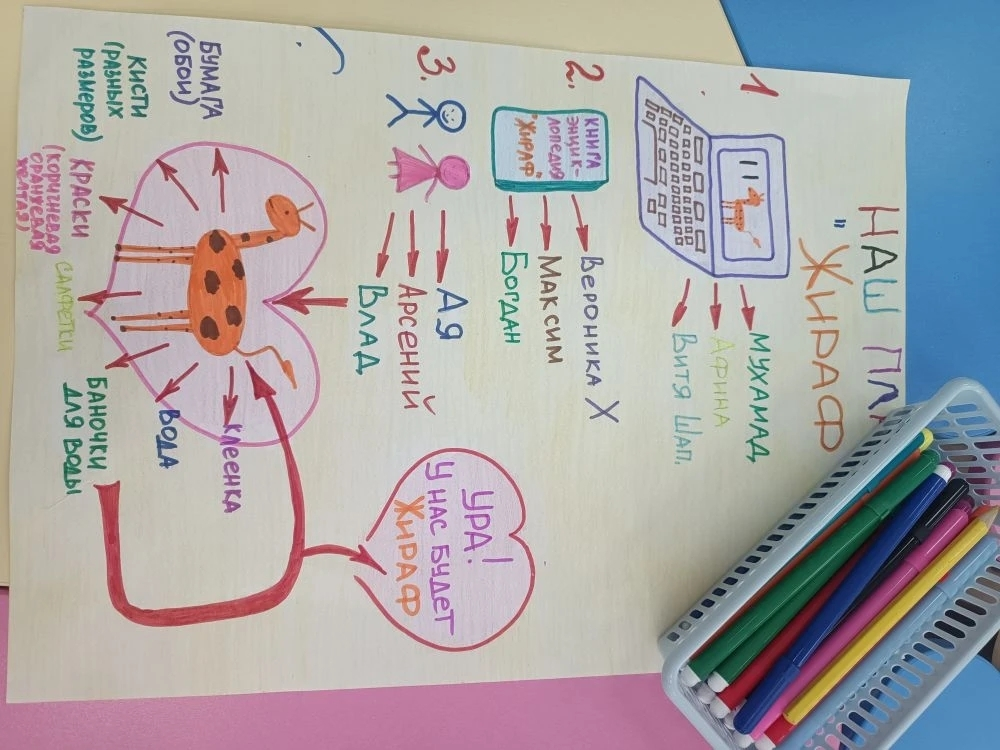 НАШ
"ЖИРАФ
1
МУХАМАД,
АФИНА
ВИТЯ ШАП.
2.
КНИГА
ЭНЦИК-
ЛОПЕДИЯ
"ЖИРАФ"
ВЕРОНИКА Х
МАКСИМ
БОГДАН
3.
АЯ
АРСЕНИЙ
ВЛАД
УРА!
У НАС БУДЕТ
ЖИРАФ
БУМАГА
(ОБОИ)
КИСТИ
(РАЗНЫХ
РАЗМЕРОВ)
КРАСКИ
(КОРИЧНЕВАЯ
ОРАНЖЕВАЯ
ЖЕЛТАЯ)
САЛФЕТКИ
БАНОЧКИ
ДЛЯ ВОДЫ
ВОДА
КЛЕЕНКА